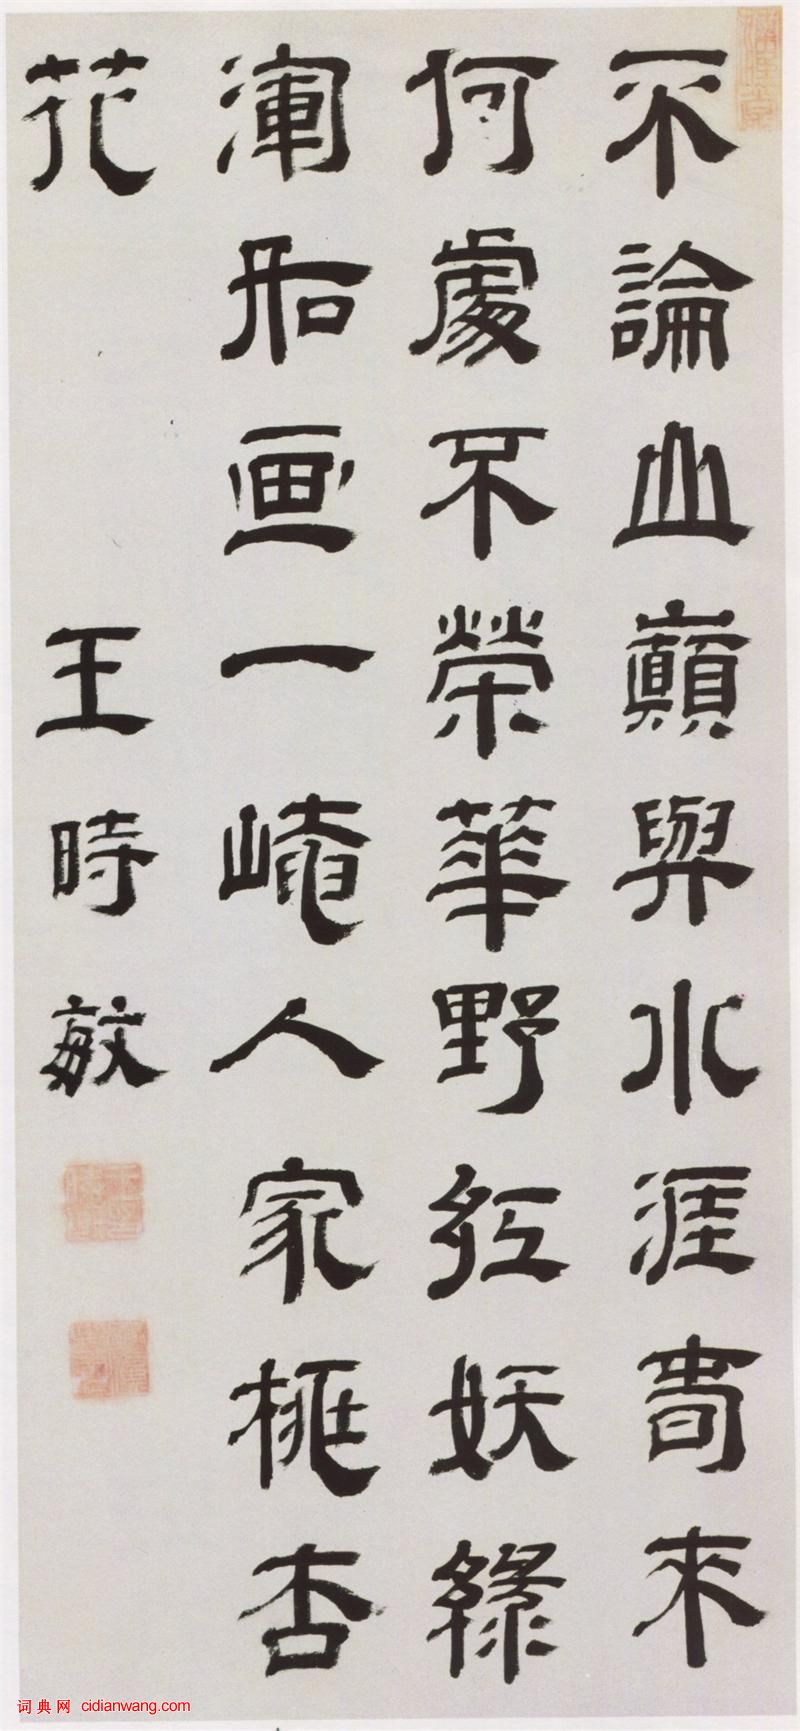 不論山巔與水涯春來
何處不榮華野紅妖綠
渾如画一崦人家桃杏
花 王時敏
词典网 cidianwang.com